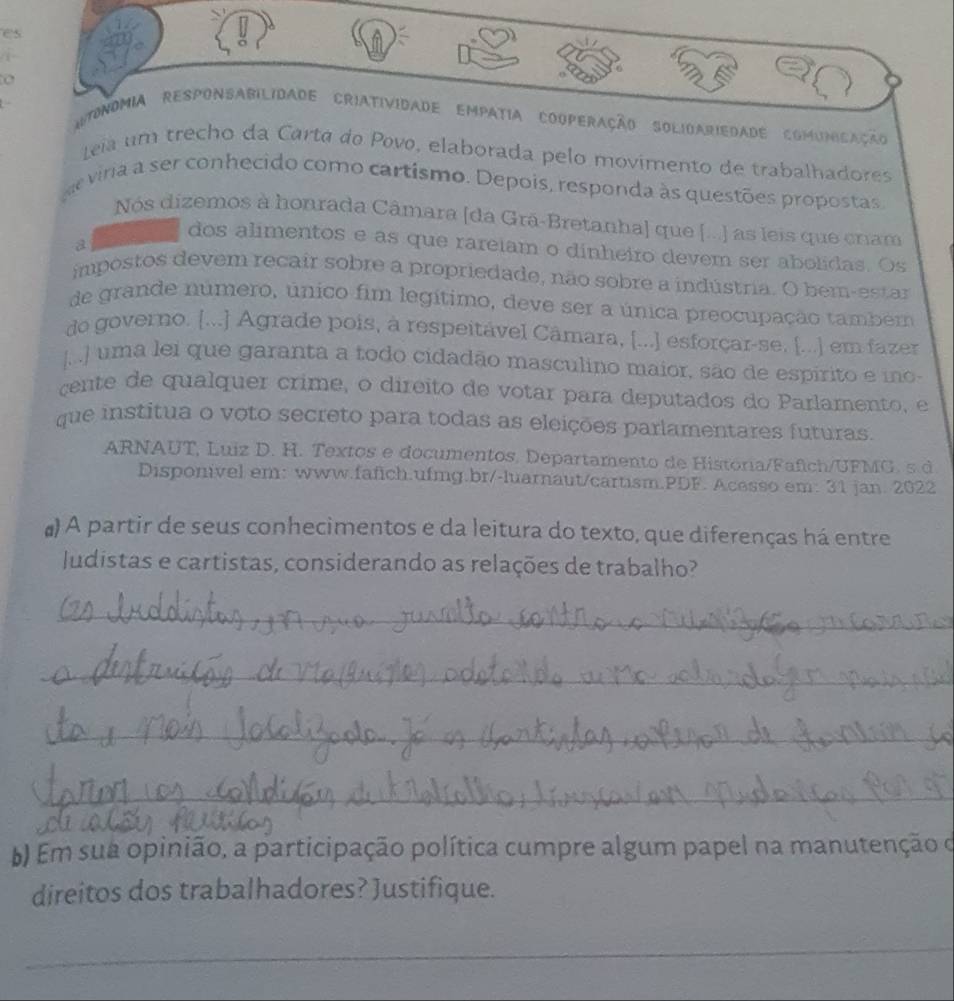 es
AUTONOMIA RESPONSABILIDADE CRIATIVIDADE EMPATIA COOPERAÇÃO SOLIDARIEDADE COMUNICAÇÃO
Leia um trecho da Carta do Povo, elaborada pelo movimento de trabalhadores
que viria a ser conhecido como cartismo. Depois, responda às questões propostas.
Nós dizemos à honrada Câmara [da Grã-Bretanha] que [...] as leis que criam
a dos alimentos e as que rareiam o dinheiro devem ser abolidas. Os
impostos devem recair sobre a propriedade, não sobre a indústria. O bem-estar
de grande número, único fim legítimo, deve ser a única preocupação também
do governo. [...] Agrade pois, à respeitável Câmara, [...] esforçar-se, [...] em fazer
[...] uma lei que garanta a todo cidadão masculino maior, são de espírito e ino-
cente de qualquer crime, o direito de votar para deputados do Parlamento, e
que institua o voto secreto para todas as eleições parlamentares futuras.
ARNAUT, Luiz D. H. Textos e documentos. Departamento de História/Fafich/UFMG, s.d.
Disponível em: www.fafich.ufmg.br/~luarnaut/cartism.PDF. Acesso em: 31 jan. 2022
a) A partir de seus conhecimentos e da leitura do texto, que diferenças há entre
ludistas e cartistas, considerando as relações de trabalho?
Os luddistas, em sua revolta contra a
a destruição de maquines adotando uma
ta e mais localizada. Já os chartistas, apesar de
as condições de trabalho, buscavam mudanças por
de ações políticas
b) Em sua opinião, a participação política cumpre algum papel na manutenção d
direitos dos trabalhadores? Justifique.